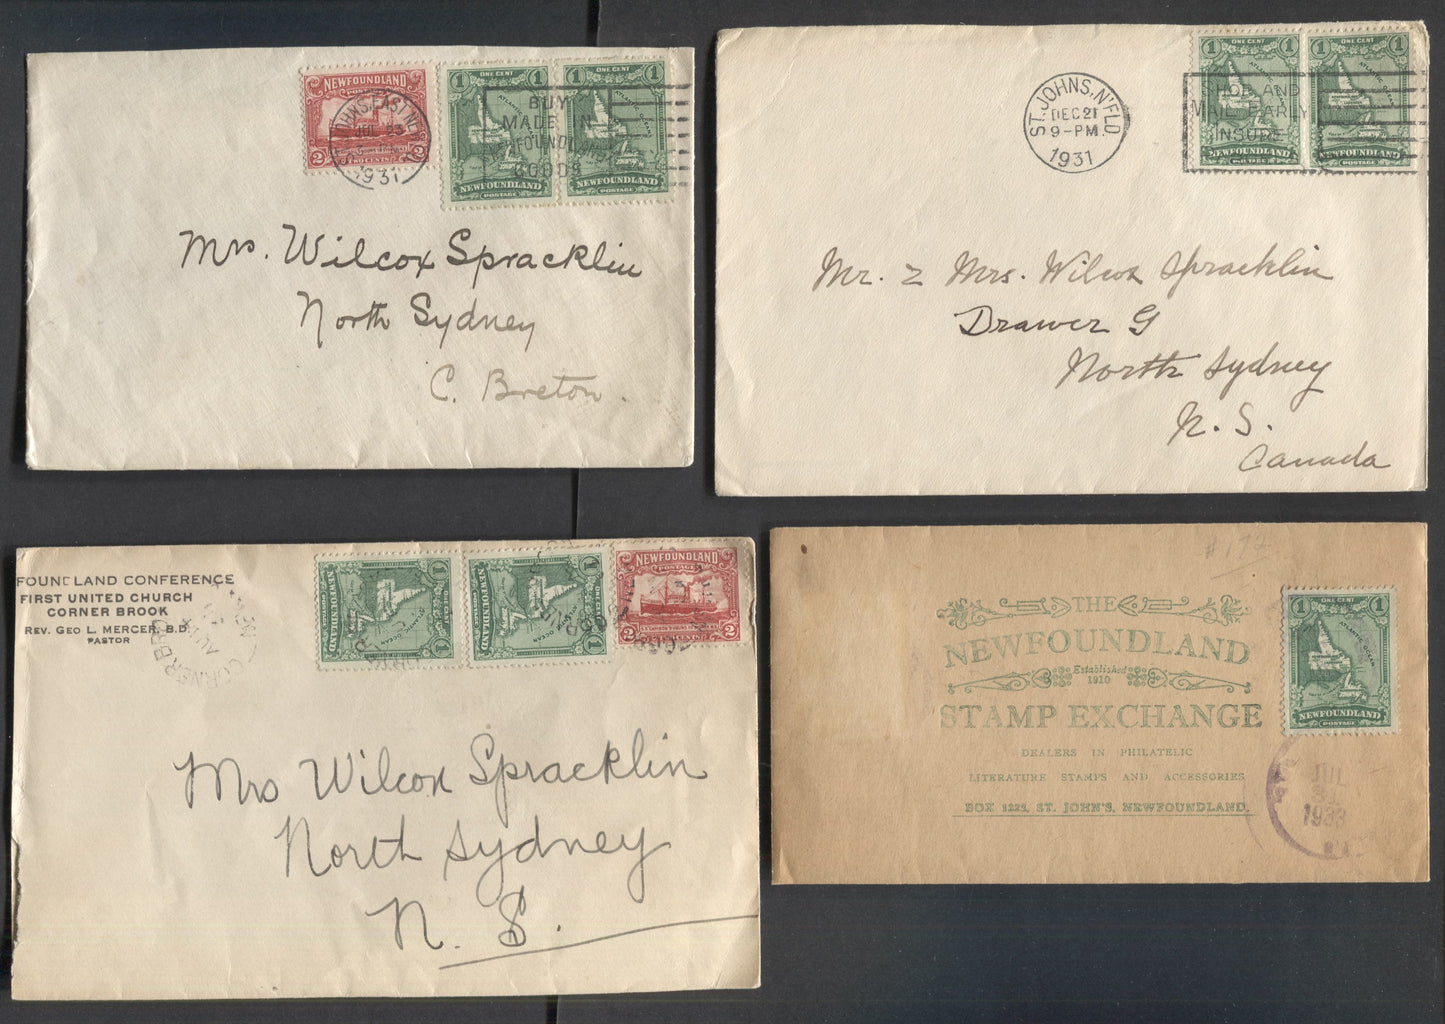 NEWFOUNDLAND
POSTAGE
2 2
TWO CENTS
1 ONE CENT 1
ATLANTIC
NEWFOUNDLAND
POSTAGE
1 ONE CENT 1
ATLANTIC OCEAN
NEWFOUNDLAND
POSTAGE
JUL 23
1931
BUY
MADE IN
GOODS
Mrs. Wilcox Spracklin
North Sydney
C. Breton.
ST. JOHNS, N'FLD
DEC 21
9-PM
1931
1 ONE CENT 1
ATLANTIC
NEWFOUNDLAND
1 ONE CENT 1
ATLANTIC OCEAN
NEWFOUNDLAND
POSTAGE
SHOP AND
MAIL EARLY
INSURE
Mr. & Mrs. Wilcox Spracklin
Drawer G
North Sydney
N. S.
Canada
FOUNDLAND CONFERENCE
FIRST UNITED CHURCH
CORNER BROOK
REV. GEO L. MERCER, B.D.
PASTOR
1 ONE CENT 1
NEWFOUNDLAND
POSTAGE
1 ONE CENT 1
NEWFOUNDLAND
POSTAGE
NEWFOUNDLAND
POSTAGE
2 2
TWO CENTS
Mrs Wilcox Spracklin
North Sydney
N. S.
#172
THE
NEWFOUNDLAND
Established
1910
STAMP EXCHANGE
DEALERS IN PHILATELIC
LITERATURE STAMPS AND ACCESSORIES
BOX 1225, ST. JOHN'S, NEWFOUNDLAND.
1 ONE CENT 1
ATLANTIC OCEAN
NEWFOUNDLAND
POSTAGE
JUL
1933